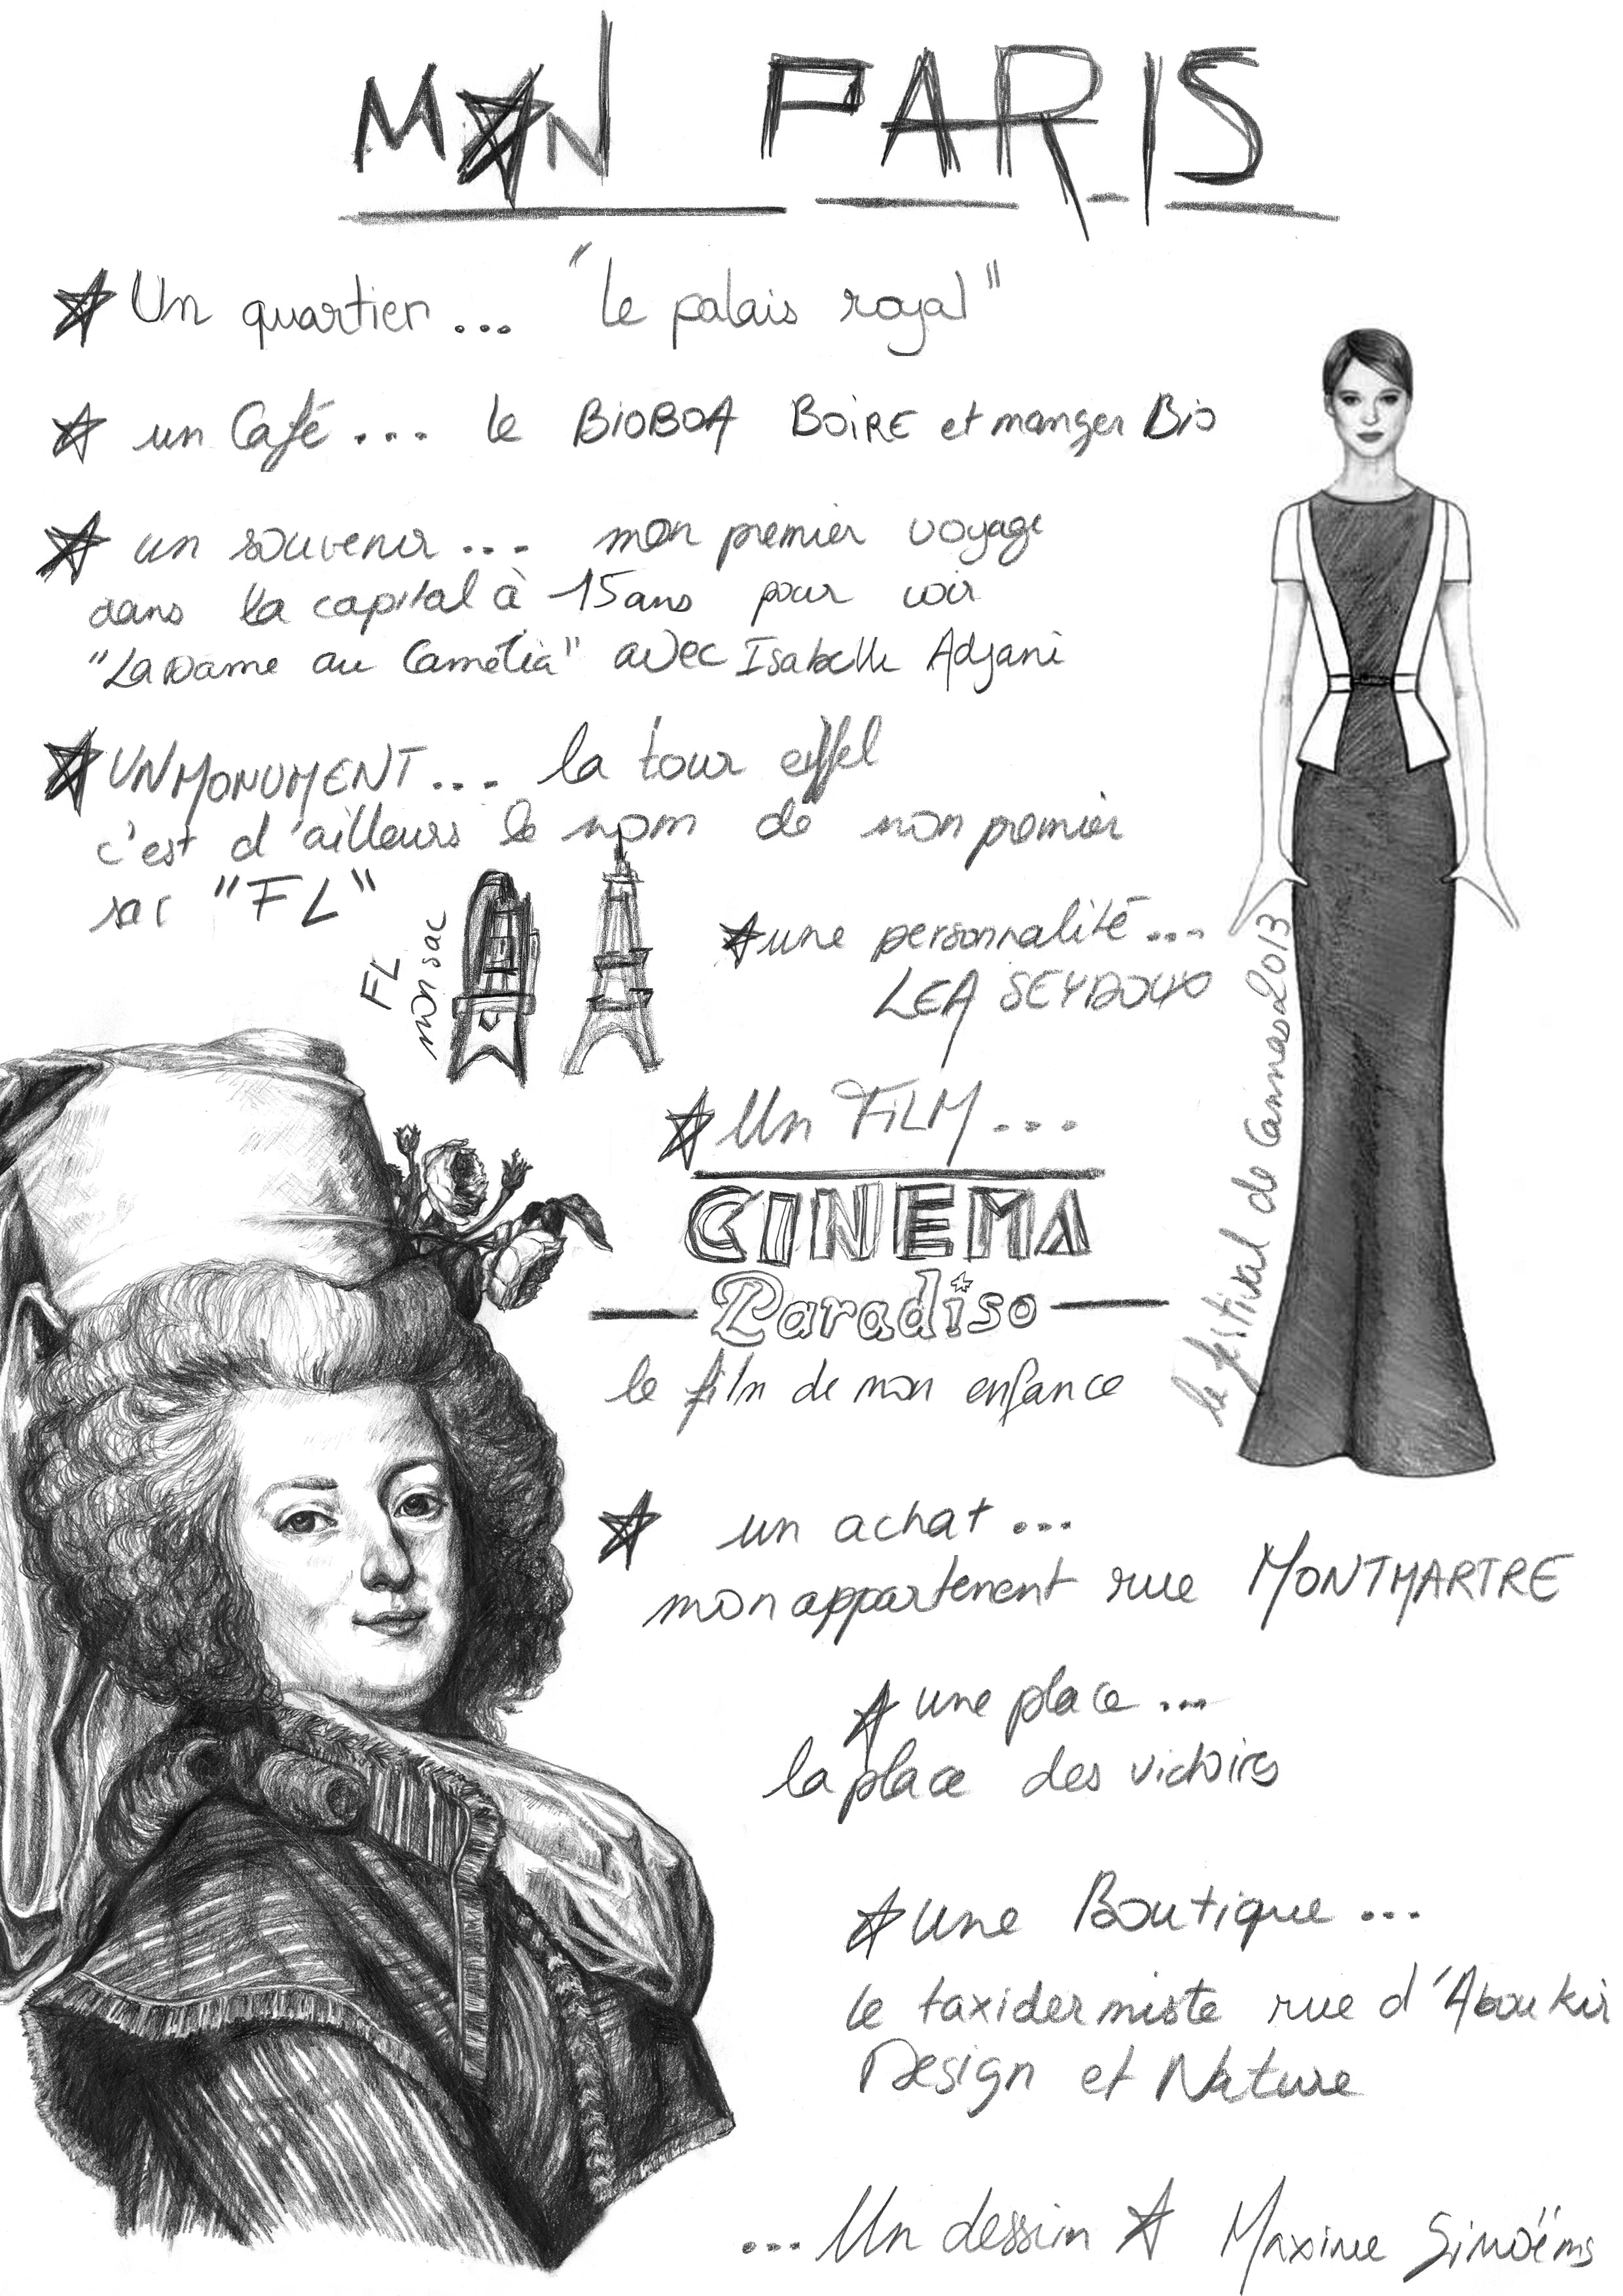 MON PARIS
Un quartier... "le palais royal"
un Café... le BiOBOA BOiRE et manger Bio
un souvenir... mon premier voyage
dans la capital à 15 ans pour voir
"La Dame au Camélia" avec Isabelle Adjani
UN MONUMENT... la tour eiffel
c'est d'ailleurs le nom de mon premier
sac "FL"
FL
mon sac
une personnalité...
LEA SEYDOUX
le festival de Cannes 2013
Un FiLM...
CINEMA
Paradiso
le film de mon enfance
un achat...
mon appartement rue MONTMARTRE
une place...
la place des victoires
une Boutique...
le taxidermiste rue d'Aboukir
Design et Nature
...Un dessin Maxime Simoëns